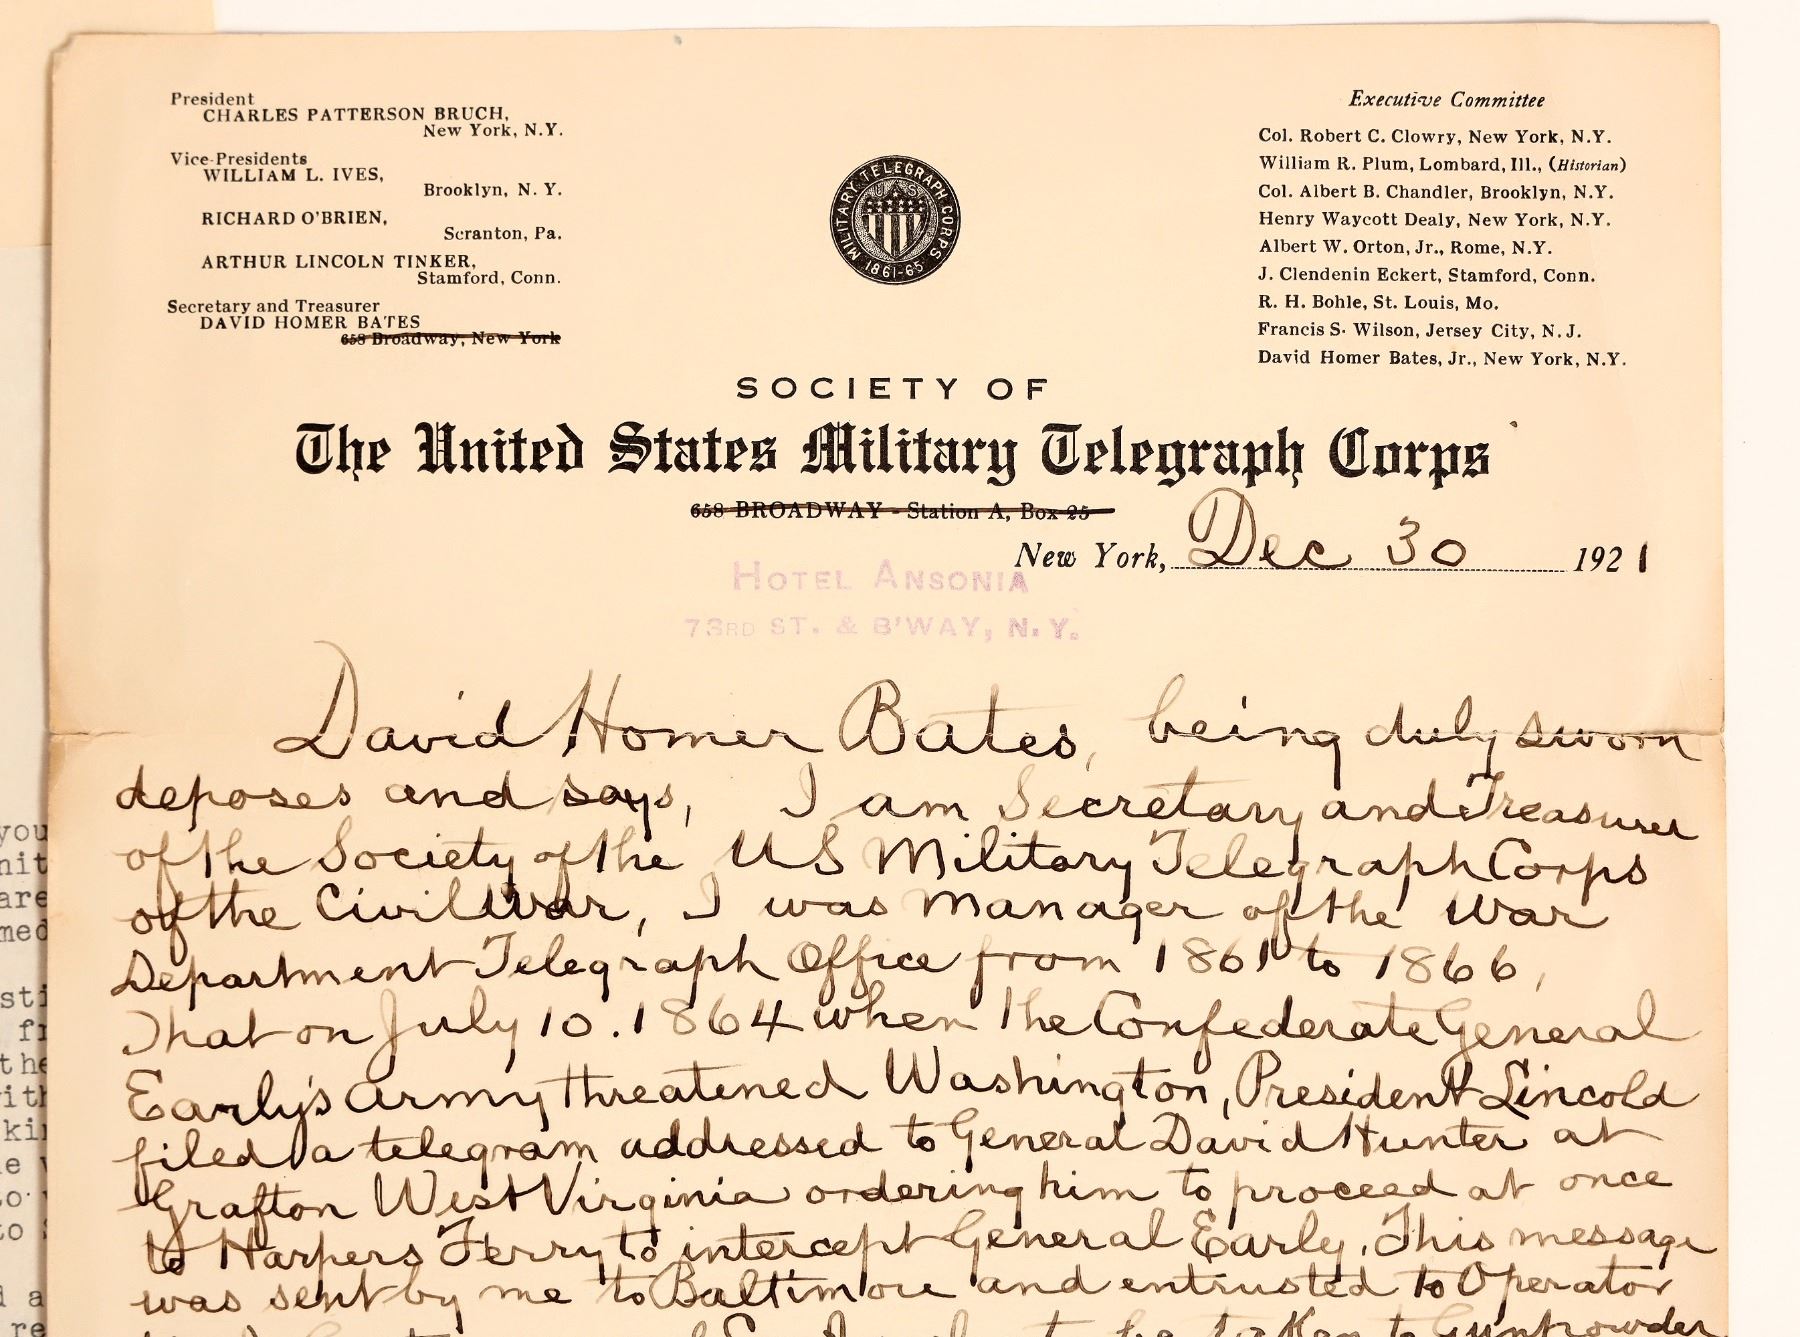 President
CHARLES PATTERSON BRUCH,
New York, N.Y.
Vice-Presidents
WILLIAM L. IVES,
Brooklyn, N. Y.
RICHARD O'BRIEN,
Scranton, Pa.
ARTHUR LINCOLN TINKER,
Stamford, Conn.
Secretary and Treasurer
DAVID HOMER BATES
658 Broadway, New York
MILITARY TELEGRAPH CORPS
U S
1861-65
Executive Committee
Col. Robert C. Clowry, New York, N.Y.
William R. Plum, Lombard, Ill., (Historian)
Col. Albert B. Chandler, Brooklyn, N.Y.
Henry Waycott Dealy, New York, N.Y.
Albert W. Orton, Jr., Rome, N.Y.
J. Clendenin Eckert, Stamford, Conn.
R. H. Bohle, St. Louis, Mo.
Francis S. Wilson, Jersey City, N. J.
David Homer Bates, Jr., New York, N.Y.
SOCIETY OF
The United States Military Telegraph Corps
658 BROADWAY - Station A, Box 25
New York, Dec 30 1921
HOTEL ANSONIA
73RD ST. & B'WAY, N. Y.
David Homer Bates, being duly sworn
deposes and says, I am Secretary and Treasurer
of the Society of the US Military Telegraph Corps
of the Civil War, I was Manager of the War
Department Telegraph Office from 1861 to 1866,
That on July 10.1864 when the Confederate General
Early's army threatened Washington, President Lincold
filed a telegram addressed to General David Hunter at
Grafton West Virginia ordering him to proceed at once
to Harpers Ferry to intercept General Early. This message
was sent by me to Baltimore and entrusted to Operator
to be taken to Gunpowder